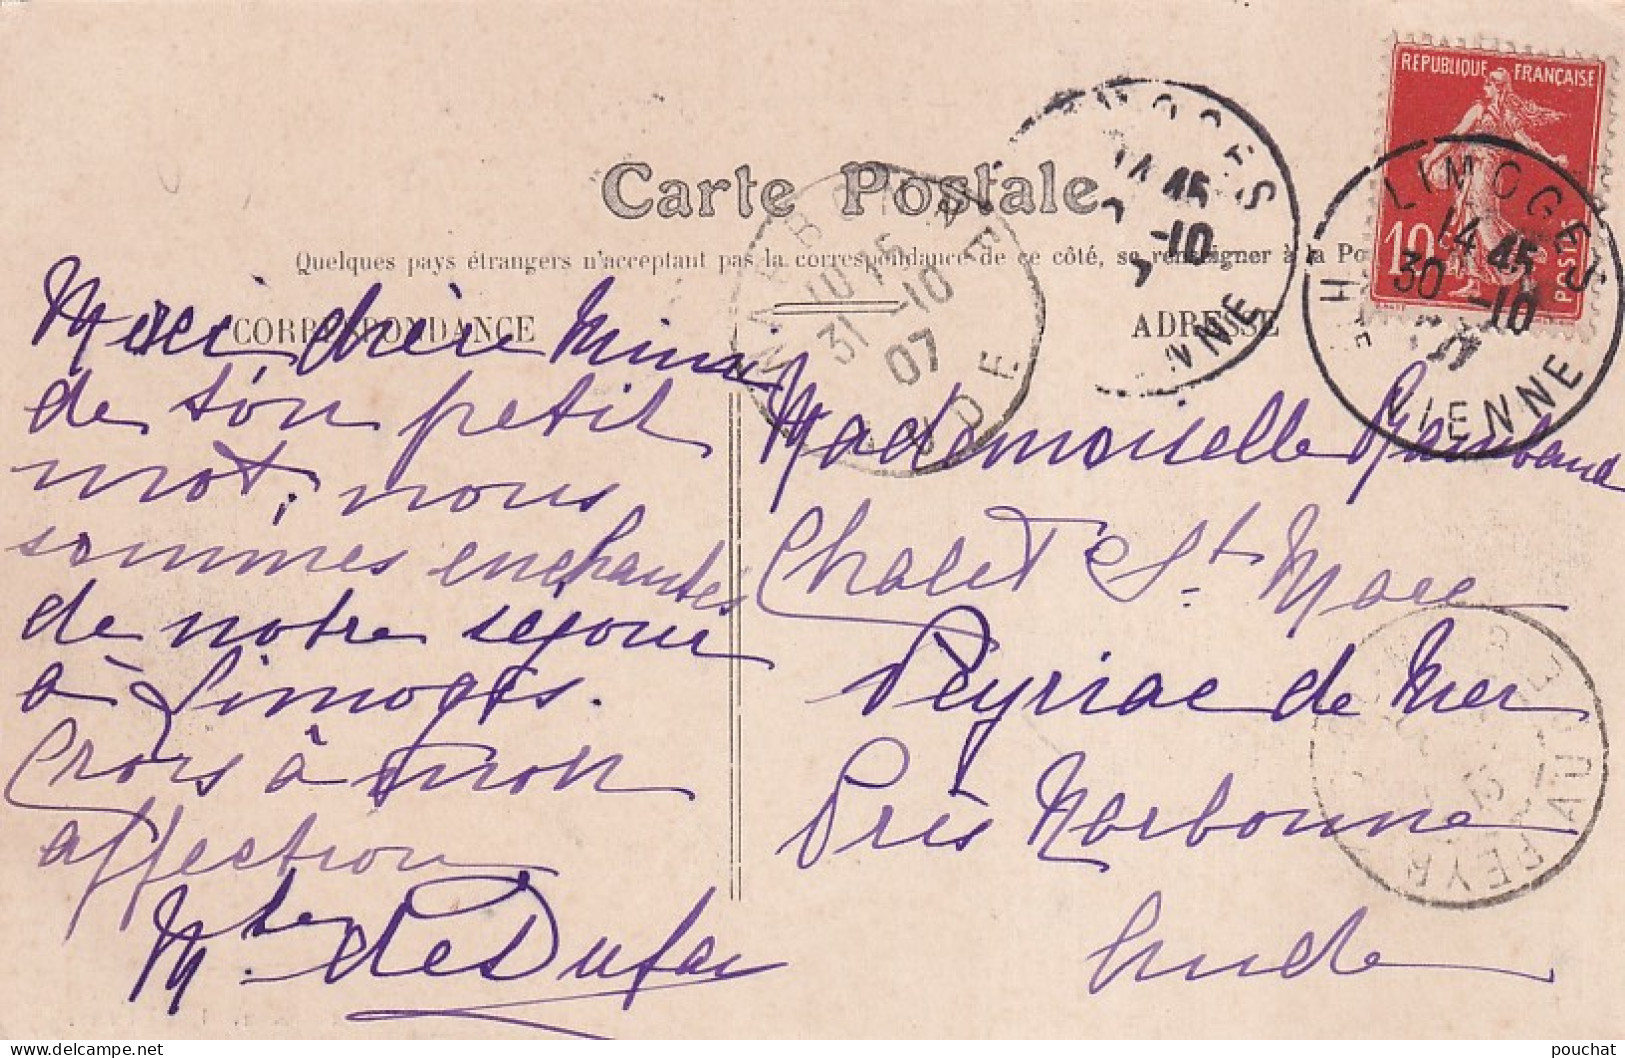 RÉPUBLIQUE FRANÇAISE
10c POSTES
LIMOGES
14 45
30 -10
07
HTE VIENNE
14 45
-10
NARBONNE
10 15
31 -10
07
AUDE
Carte Postale
Quelques pays étrangers n'acceptant pas la correspondance de ce côté, se renseigner à la Po
CORRESPONDANCE
ADRESSE
Merci chère Mimi
de ton petit
mot, nous
sommes enchantés
de notre séjour
à Limoges.
Crois à mon
affection
Mademoiselle
Chalet St Marc
Peyriac de Mer
Près Narbonne
Aude
PEYR
AUDE
pouchat